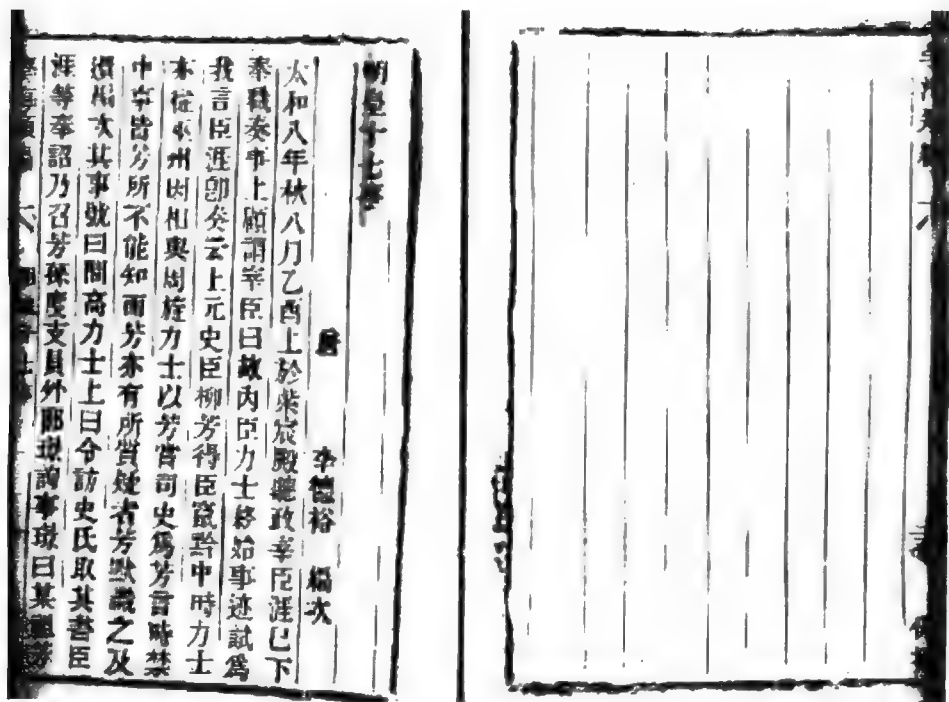 明皇十七事
唐　李德裕　編次
太和八年秋八月乙酉上於紫宸殿聽政宰臣涯已下
奉職奏事上顧謂宰臣曰故內臣力士終始事迹試爲
我言臣涯卽奏云上元史臣柳芳得臣竄黔中時力士
亦從巫州因相與周旋力士以芳嘗司史爲芳言時禁
中事皆芳所不能知而芳亦有所質疑者芳默識之及
還編次其事號曰問高力士上曰令訪史氏取其書臣
涯等奉詔乃召芳孫度支員外郎璟詢事璟曰某祖芳